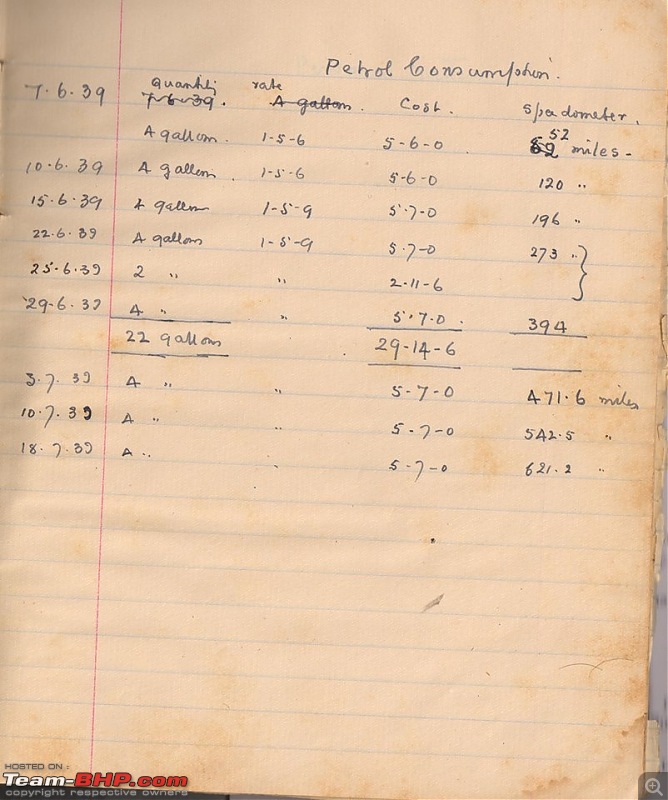 Petrol Consumption.
7.6.39 Quantity rate
7-6-39. 4 gallons. Cost. Spedometer.
52
4 gallons. 1-5-6 5-6-0. 52 miles-
10.6.39 4 gallons. 1-5-6 5-6-0 120 "
15.6.39 4 gallons 1-5-9 5-7-0 196 "
22.6.39 4 gallons 1-5-9 5-7-0 273 "
25.6.39 2 " " 2-11-6
29-6.39 4 " " 5.7.0. 394
22 gallons 29-14-6
3.7.39 4 " " 5-7-0 471.6 miles
10.7.39 4 " " 5-7-0 542.5 "
18.7.39 4 " " 5-7-0 621.2 "
HOSTED ON :
Team-BHP.com
copyright respective owners